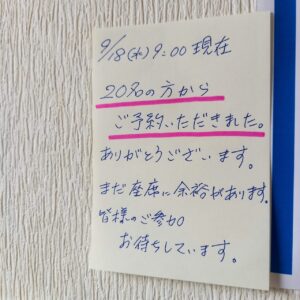 9/18(水)9:00現在
20名の方から
ご予約いただきました。
ありがとうございます。
まだ座席に余裕があります。
皆様のご参加
お待ちしています。